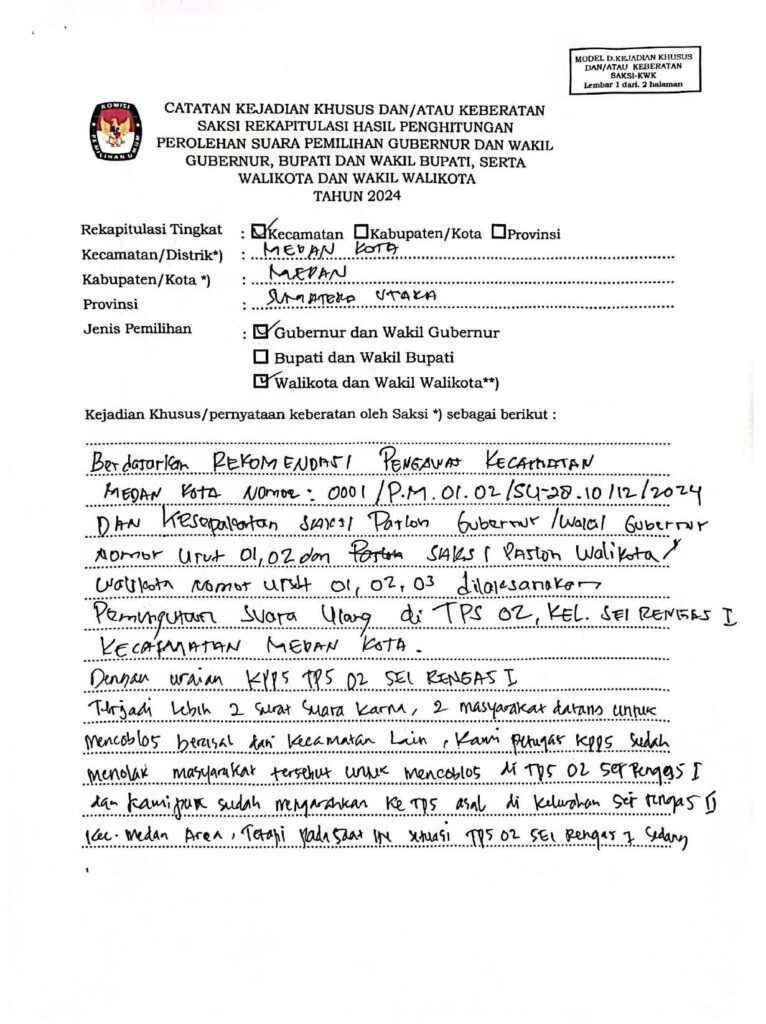 MODEL D.KEJADIAN KHUSUS
DAN/ATAU KEBERATAN
SAKSI-KWK
Lembar 1 dari. 2 halaman
KOMISI
PEMILIHAN UMUM
CATATAN KEJADIAN KHUSUS DAN/ATAU KEBERATAN
SAKSI REKAPITULASI HASIL PENGHITUNGAN
PEROLEHAN SUARA PEMILIHAN GUBERNUR DAN WAKIL
GUBERNUR, BUPATI DAN WAKIL BUPATI, SERTA
WALIKOTA DAN WAKIL WALIKOTA
TAHUN 2024
Rekapitulasi Tingkat : ☑Kecamatan ☐Kabupaten/Kota ☐Provinsi
Kecamatan/Distrik*) : MEDAN KOTA
Kabupaten/Kota *) : MEDAN
Provinsi : SUMATERA UTARA
Jenis Pemilihan : ☑ Gubernur dan Wakil Gubernur
☐ Bupati dan Wakil Bupati
☑ Walikota dan Wakil Walikota**)
Kejadian Khusus/pernyataan keberatan oleh Saksi *) sebagai berikut :
Berdasarkan REKOMENDASI PENGAWAS KECAMATAN
MEDAN KOTA NOMOR : 0001/P.M.01.02/SU-28.10/12/2024
DAN Kesepakatan SAKSI Paslon Gubernur/Wakil Gubernur
Nomor Urut 01,02 dan Paslon SAKSI Paslon Walikota/
Walikota Nomor Urut 01, 02, 03 dilaksanakan
Pemungutan Suara Ulang di TPS 02, KEL. SEI RENGAS I
KECAMATAN MEDAN KOTA.
Dengan uraian KPPS TPS 02 SEI RENGAS I
Terjadi Lebih 2 Surat Suara Karna, 2 masyarakat datang untuk
mencoblos berasal dari Kecamatan Lain, Kami petugas KPPS sudah
menolak masyarakat tersebut untuk mencoblos di TPS 02 Sei Rengas I
dan Kamipun sudah mengarahkan Ke TPS asal di Kelurahan Sei Rengas II
Kec. Medan Area, Tetapi pada saat ini situasi TPS 02 SEI Rengas I Sedang